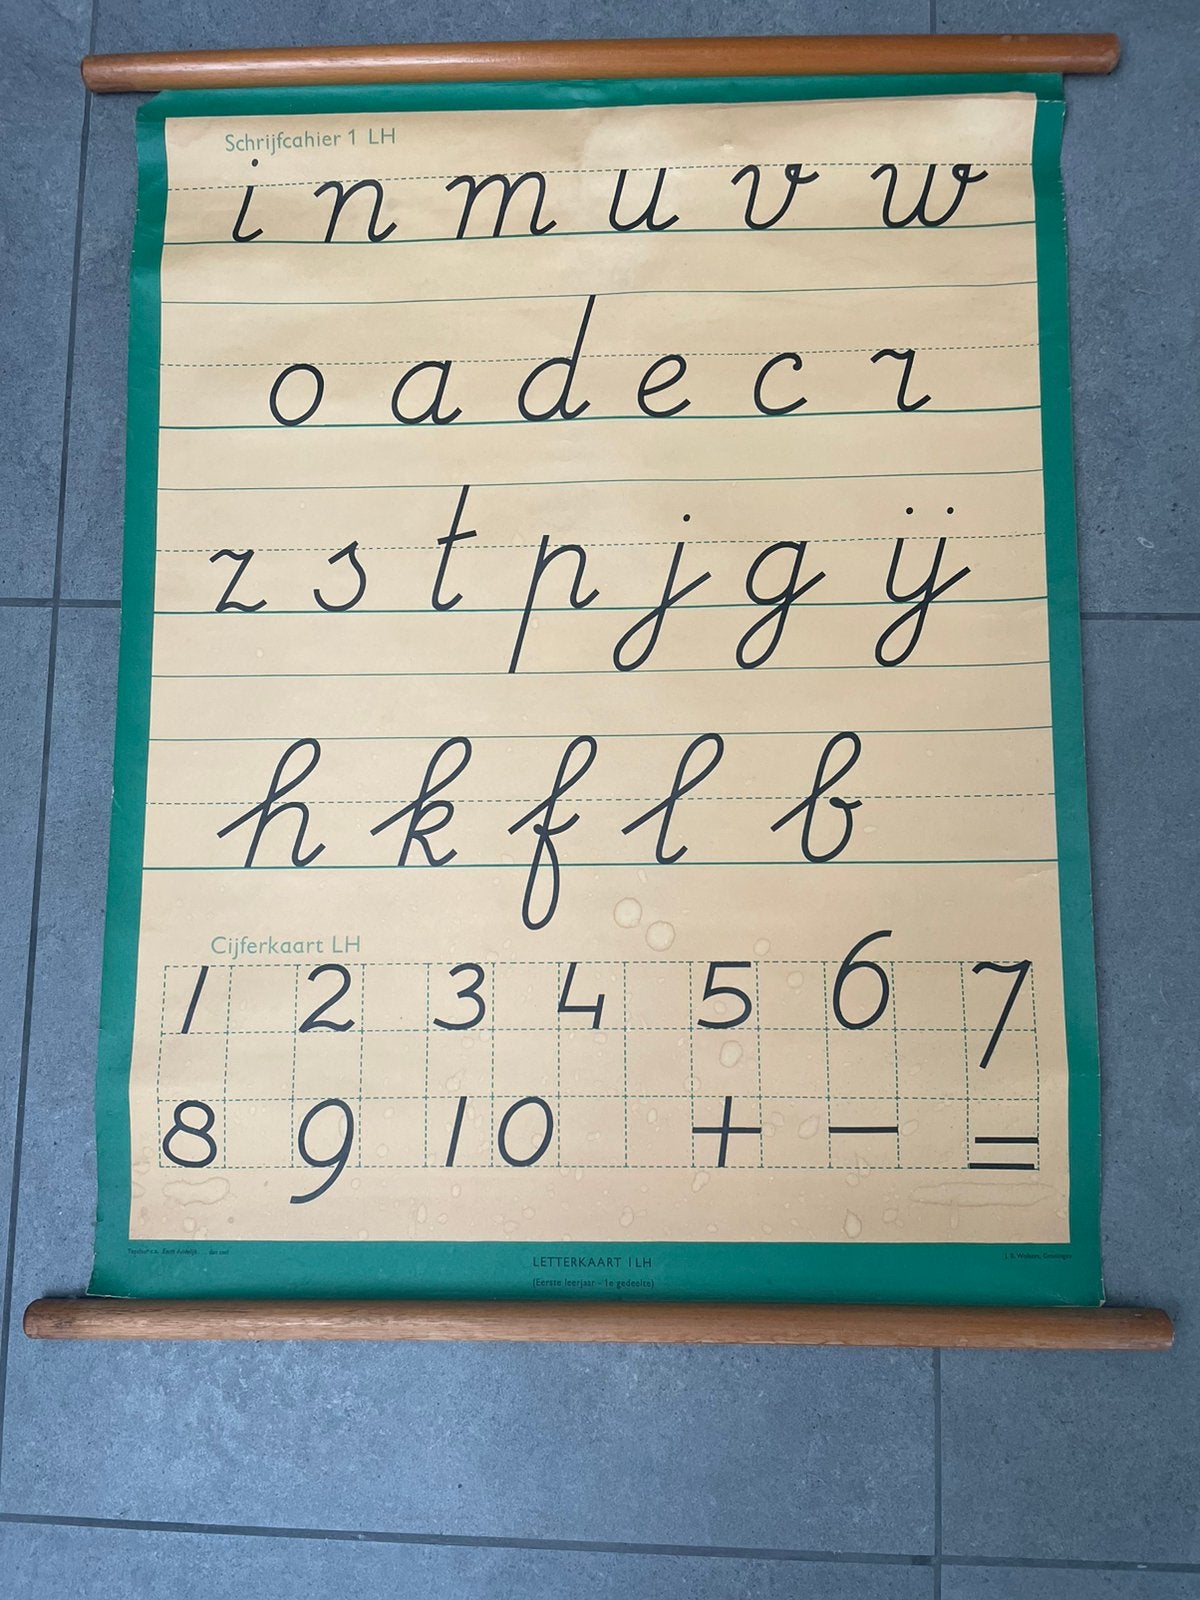 Schrijfcahier 1 LH
i n m u v w
o a d e c r
z s t p j g ij
h k f l b
Cijferkaart LH
1 2 3 4 5 6 7
8 9 10 + − =
LETTERKAART 1 LH
(Eerste leerjaar - 1e gedeelte)
J. B. Wolters, Groningen